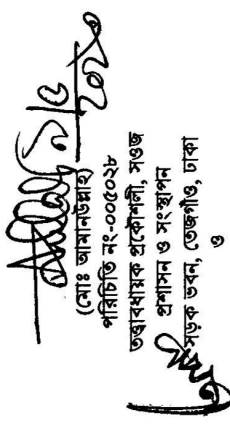 (মোঃ আমানউল্লাহ)
পরিচিতি নং-০০৫০২৮
তত্ত্বাবধায়ক প্রকৌশলী, সওজ
প্রশাসন ও সংস্থাপন
সড়ক ভবন, তেজগাঁও, ঢাকা
ও